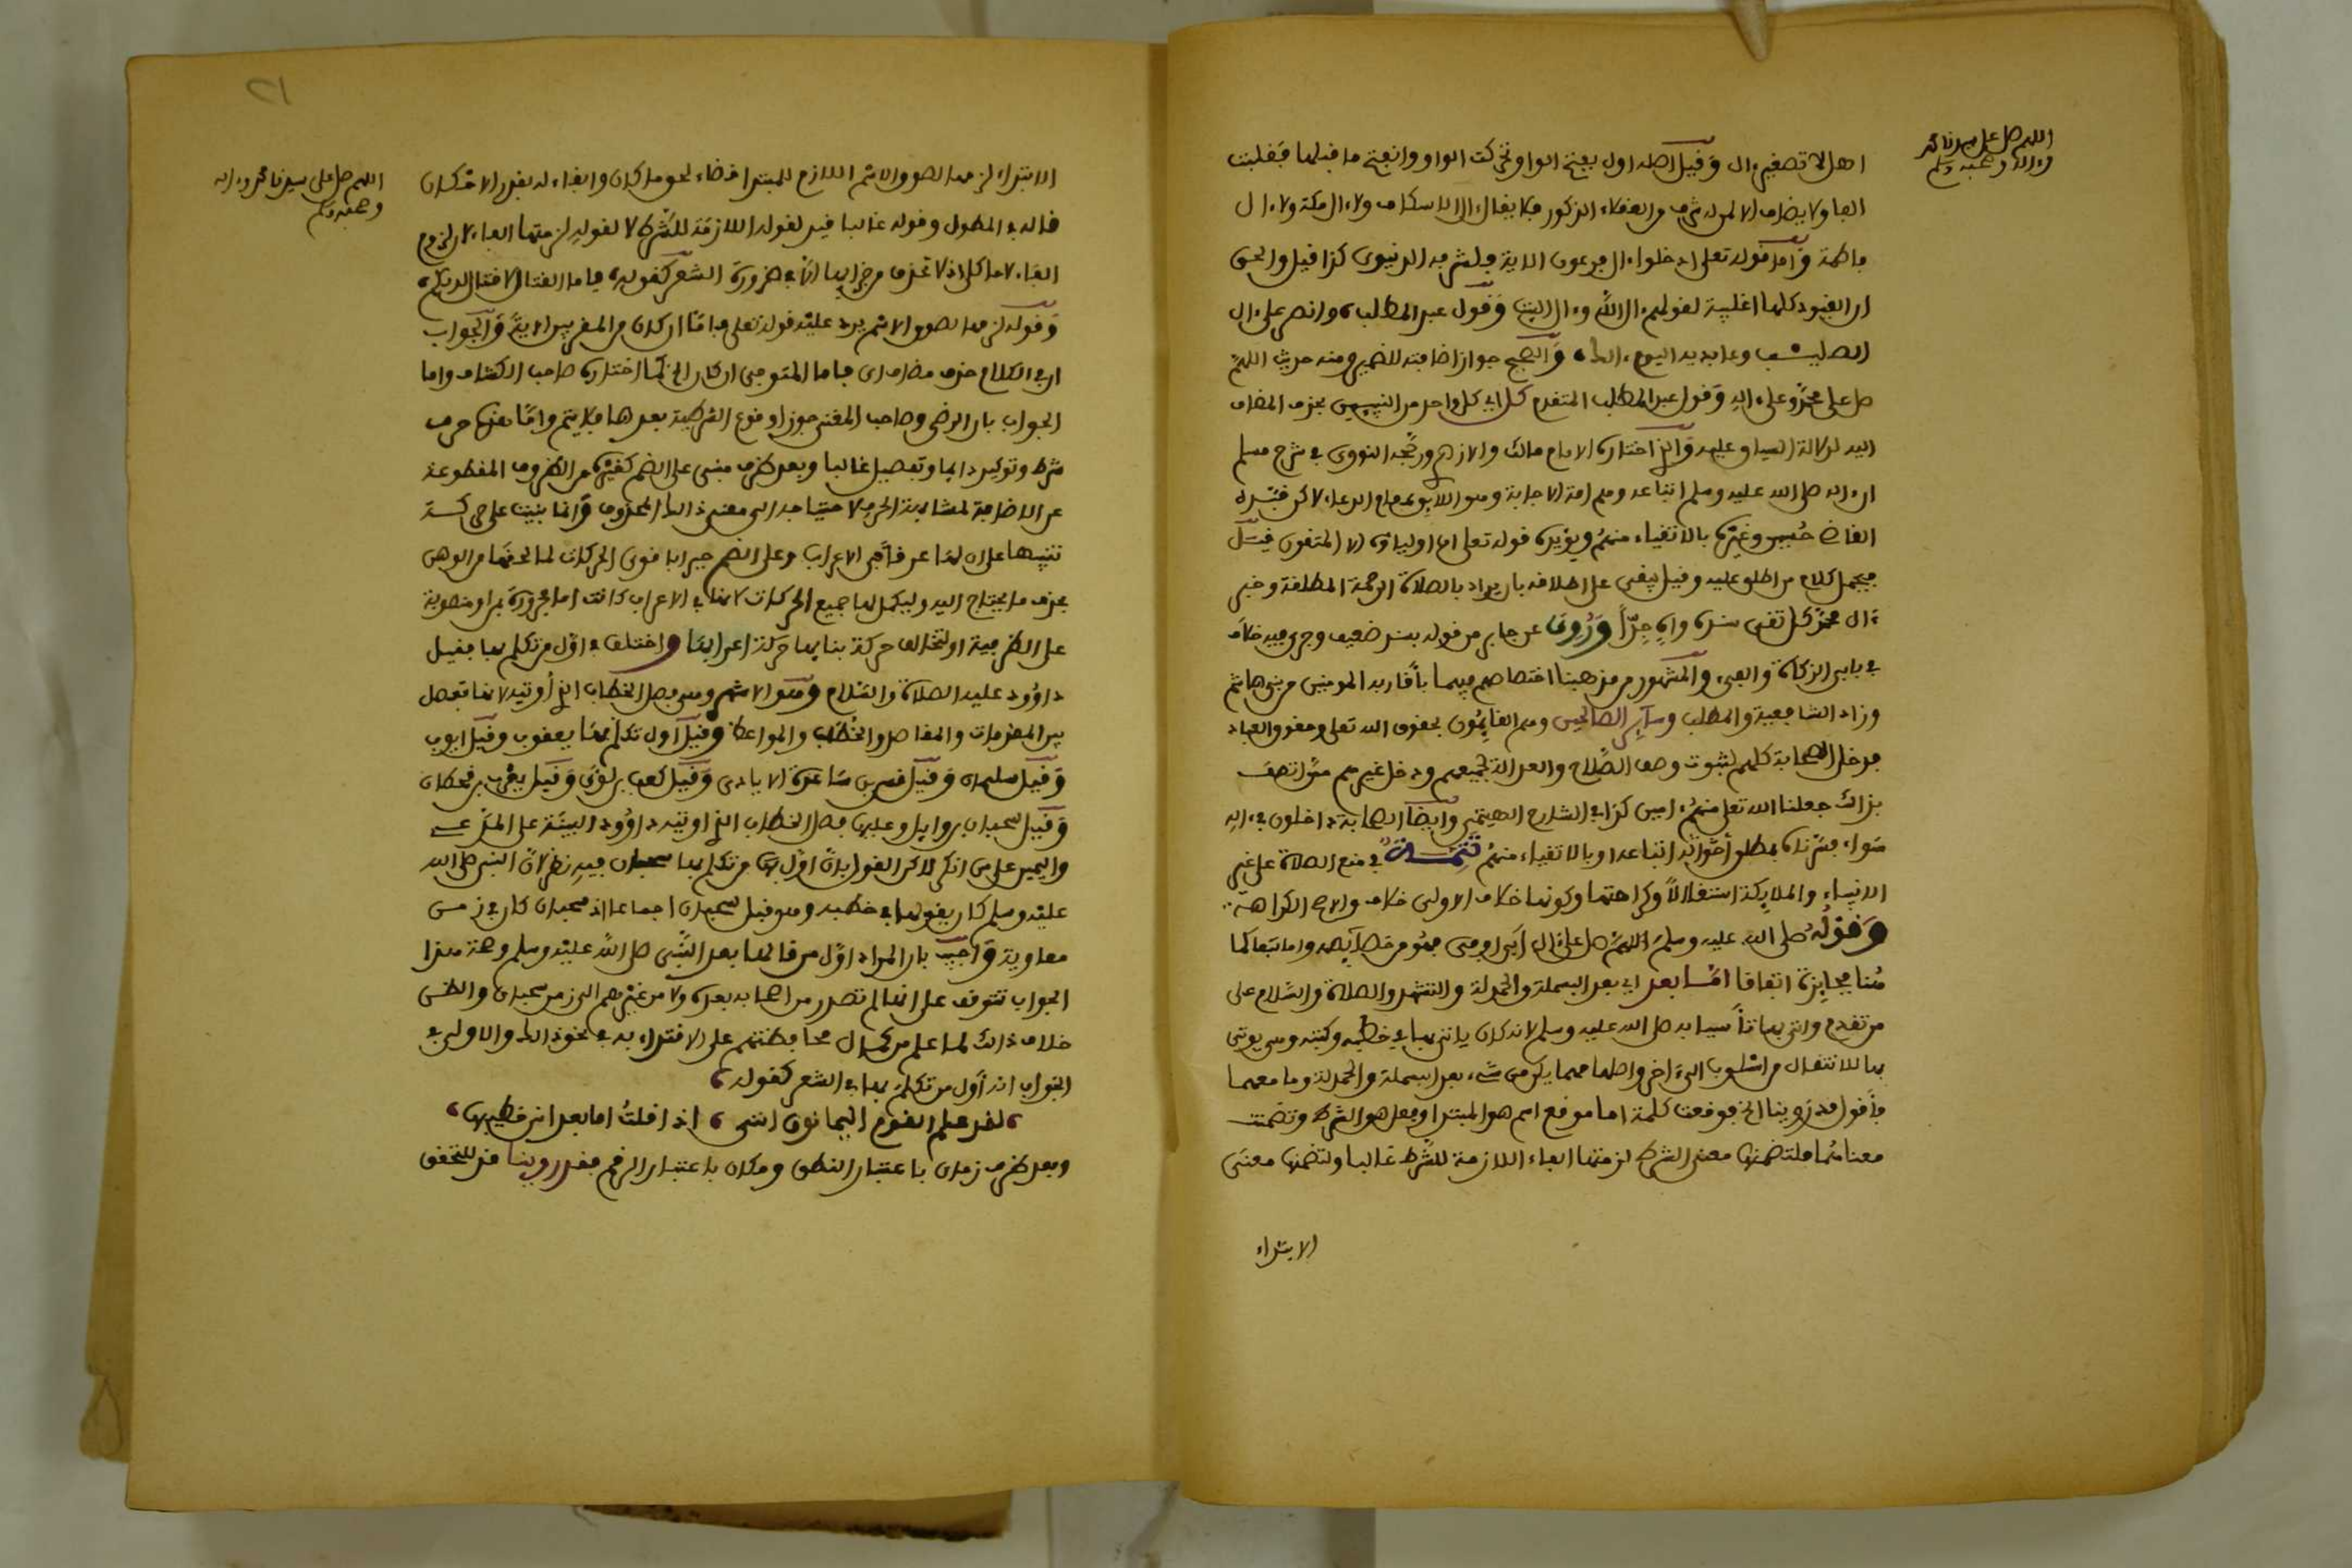 اللهم صل على سيدنا محمد
وءاله وصحبه وسلم
اهل لا تصغيره ال وقيل اصله اول بفتح الواو تحركت الواو وانفتح ما قبلها فقلبت
الفا ولا يضاف الا لمن له شرف من العقلاء الذكور فلا يقال ءال الاسكاف ولا ءال مكة ولا ءال
فاطمة واما قوله تعلى ادخلوا ءال فرعون الاية فلشرفه الدنيوي كذا قيل والحق
ان القيود كلها اغلبية لقولهم ءال الله وءال البيت وقول عبد المطلب وانصر على ءال
الصليب وعابديه اليوم ءالك والصحيح جواز اضافته للضمير ومنه حديث اللهم
صل على محمد وعلى ءاله وقول عبد المطلب المتقدم كل في كل واحد من البيتين بحذف المضاف
اليه لدلالة السياق عليه والذي اختاره الامام مالك والازهري ورجحه النووي في شرح مسلم
ان ءاله صلى الله عليه وسلم اتباعه وهم امة الاجابة وهو اللايق بمقام الدعاء لاكن قيده
القاضي حسين وغيره بالاتقياء منهم ويؤيده قوله تعلى ان اولياؤه الا المتقون قيل
فيحمل كلام من اطلق عليه وقيل يبقى على اطلاقه بان يراد بالصلاة الرحمة المطلقة وخبر
ءال محمد كل تقي سنده واه جدا وروي عن جابر من قوله بسند ضعيف وجرى فيه خلاف
في بابي الزكاة والفيء والمشهور من مذهبنا اختصاصهم فيهما باقاربه المومنين من بني هاشم
وزاد الشافعية والمطلب وساير الصالحين وهم القايمون بحقوق الله تعلى وحقوق العباد
فدخل الصحابة كلهم لثبوت وصف الصلاح والعدالة لجميعهم ودخل غيرهم ممن اتصف
بذالك جعلنا الله تعلى منهم ءامين كذا في الشارح الهيتمي وايضا الصحابة داخلون في ءاله
سواء فسرناه بمطلق اتباعه او بالاتقياء منهم تتمة في منع الصلاة على غير
الانبياء والملايكة استقلالا وكراهتها وكونها خلاف الاولى خلاف والاصح الكراهة
وقوله صلى الله عليه وسلم اللهم صل على ءال ابي اوفى فهو من خصايصه واما تبعا كما
هنا فجايزة اتفاقا اما بعد اي بعد البسملة والحمدلة والتشهد والصلاة والسلام على
من تقدم واتى بها تأسيا به صلى الله عليه وسلم لانه كان ياتي بها في خطبه وكتبه وهي يوتى
بها للانتقال من اسلوب الى ءاخر واصلها مهما يكن من شيء بعد البسملة والحمدلة وما معهما
فأقول قد روينا الخ فوقعت كلمة اما موقع اسم هو المبتدا وفعل هو الشرط وتضمنت
معناهما فلتضمنها معنى الشرط لزمتها الفاء اللازمة للشرط غالبا ولتضمنها معنى
الابتداء
٢١
اللهم صل على سيدنا محمد وءاله
وصحبه وسلم
الابتداء لزمها لصوق الاسم اللازم للمبتدا قضاء لحق ما كان وابقاء له بقدر الامكان
قاله في المطول وقوله غالبا قيد لقوله اللازمة للشرط لا لقوله لزمتها الفاء لان لزوم
الفاء لاما كلي اذ لا تحذف من جوابها الا في ضرورة الشعر كقوله فاما القتال لا قتال لديكم
وقوله لزمها لصوق الاسم يرد عليه قوله تعلى فاما ان كان من المقربين الاية والجواب
ان في الكلام حذف مضاف اي فاما المتوفى ان كان الخ كما اختاره صاحب الكشاف واما
الجواب بان الرضي وصاحب المغني جوزا وقوع الشرطية بعدها فلا يتم واما هنا حرف
شرط وتوكيد دايما وتفصيل غالبا وبعد ظرف مبني على الضم كغيره من الظروف المقطوعة
عن الاضافة لمشابهة الحرف لاحتياجه الى معنى ذالك المحذوف وانما بنيت على حركة
تنبيها على ان لها عرقا في الاعراب وعلى الضم جبرا باقوى الحركات لما لحقها من الوهن
بحذف ما يحتاج اليه وليكمل لها جميع الحركات لانها في الاعراب كانت اما مجرورة بمن او منصوبة
على الظرفية او لتخالف حركة بنايها حركة اعرابها واختلف في اول من تكلم بها فقيل
داوود عليه الصلاة والسلام وهو الاشهر وهي فصل الخطاب الذي أوتيه لانها تفصل
بين المقدمات والمقاصد والخطب والمواعظ وقيل اول من تكلم بها يعقوب وقيل ايوب
وقيل سليمان وقيل قس بن ساعدة الايادي وقيل كعب بن لؤي وقيل يعرب بن قحطان
وقيل سحبان بن وايل وعليه ففصل الخطاب الذي اوتيه داوود البينة على المدعي
واليمين على من انكر لاكن القول بان اول من تكلم بها سحبان فيه نظر لان النبي صلى الله
عليه وسلم كان يقولها في خطبه وهو قبل سحبان اجماعا اذ سحبان كان في زمن
معاوية واجيب بان المراد اول من قالها بعد النبي صلى الله عليه وسلم وصحة هذا
الجواب تتوقف على انها لم تصدر من اصحابه بعده ولا من غيرهم الى زمن سحبان والظن
خلاف ذالك لما علم من كمال محافظتهم على الاقتداء به في نحو ذالك والاولى في
الجواب انه أول من تكلم بها في الشعر كقوله
لقد علم القوم اليمانون انني اذا قلت اما بعد اني خطيبها
وبعد ظرف زمان باعتبار النطق ومكان باعتبار الرقم فقد روينا قد للتحقق